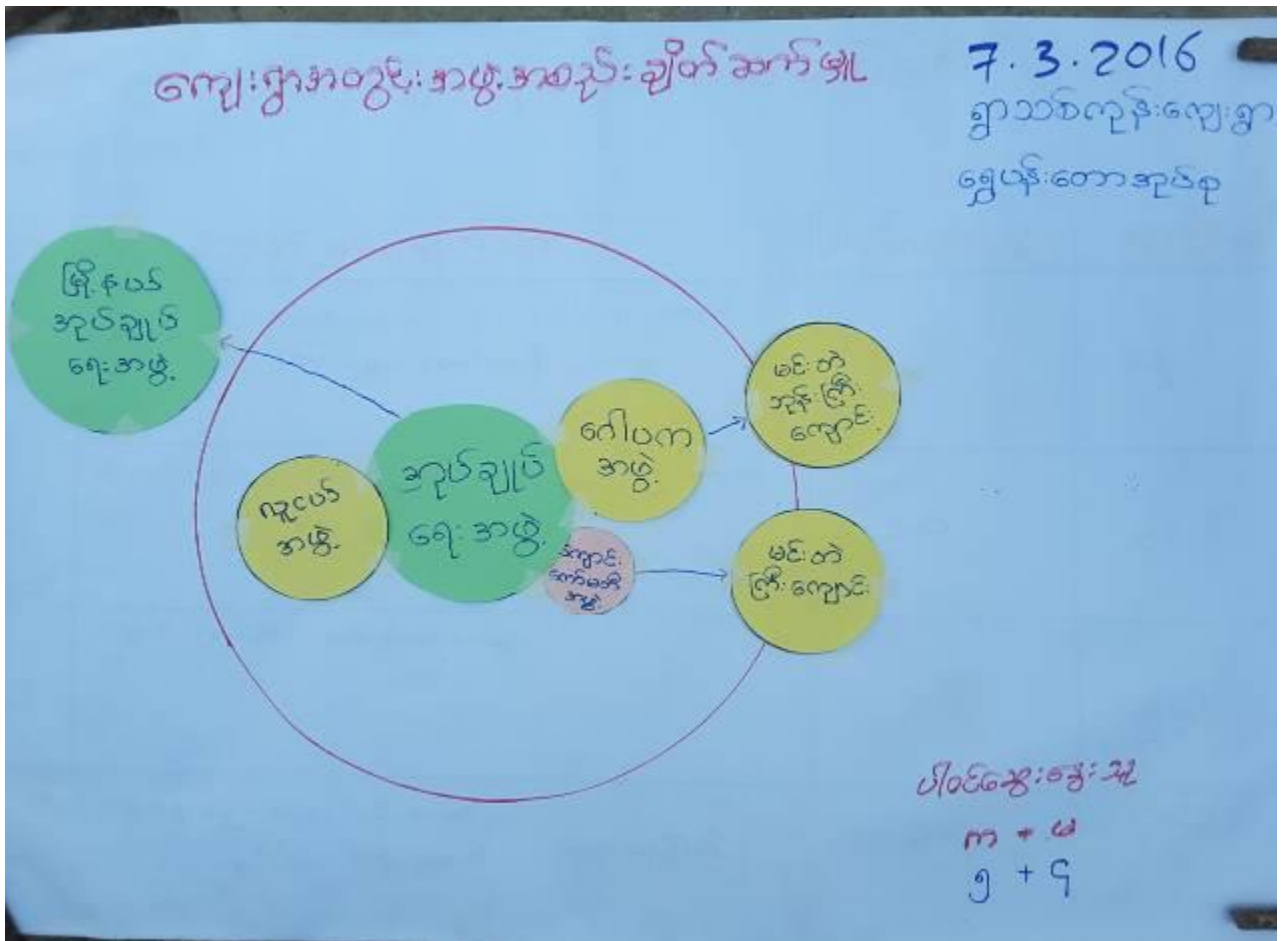 ကျေးရွာအတွင်းအဖွဲ့အစည်းချိတ်ဆက်မှု
7.3.2016
ရွာသစ်ကုန်းကျေးရွာ
ရွှေပန်းတောအုပ်စု
မြို့နယ်
အုပ်ချုပ်
ရေးအဖွဲ့
အုပ်ချုပ်
ရေးအဖွဲ့
လူငယ်
အဖွဲ့
ဂေါပက
အဖွဲ့
ကျောင်း
ကော်မတီ
အဖွဲ့
မင်းတဲ
ဘုန်းကြီး
ကျောင်း
မင်းတဲ
ကြီးကျောင်း
ပါဝင်ဆွေးနွေးသူ
ကာ + မ
၅ + ၄